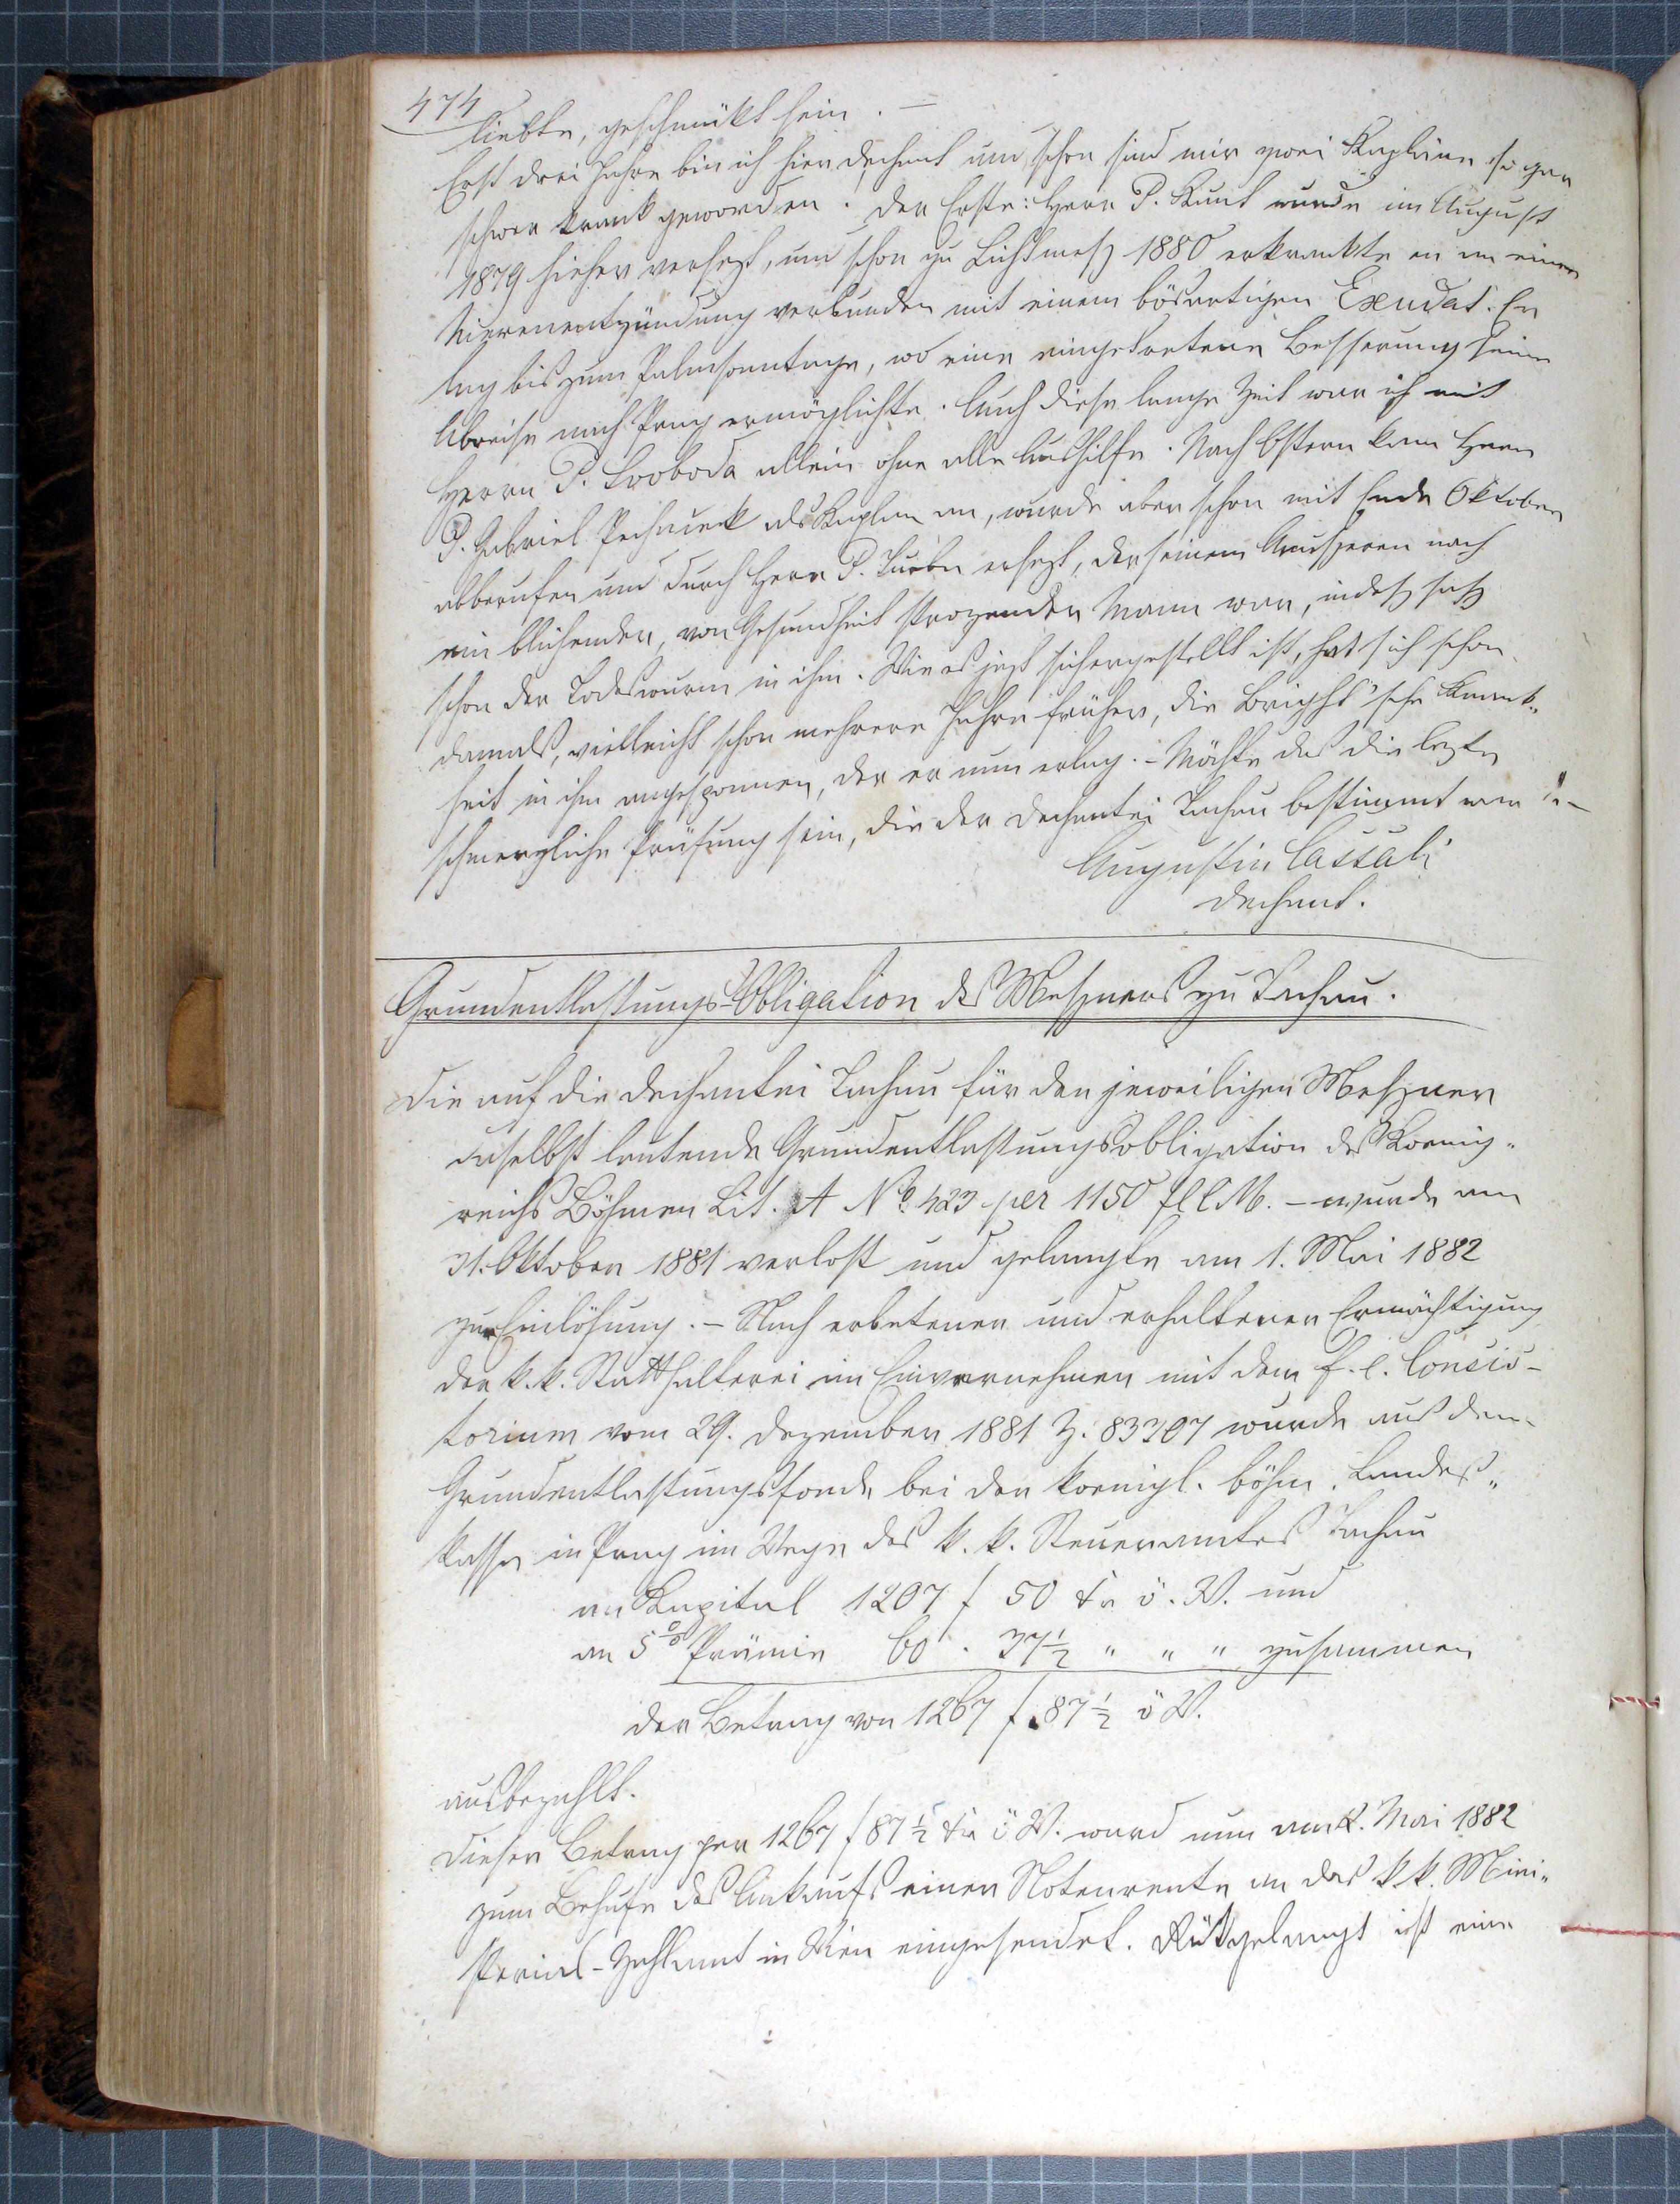 474
liebte, geschmükt sein. —
Erst drei Jahre bin ich hier Dechant und schon sind mir zwei Kapläne so gar
schwer krank geworden. Der Erste: Herr P. Kunt wurde im August
1879 hieher versezt, und schon zu Lichtmeß 1880 erkrankte er an einer
Nierenentzündung verbunden mit einem bösartigen Exudat. Er
lag bis zum Palmsonntage, wo eine eingetretene Besserung seine
Abreise nach Prag ermöglichte. Auch diese lange Zeit war ich mit
Herrn P. Svoboda allein ohne alle Aushilfe. Nach Ostern kam Herr
P. Gabriel Pechaček als Kaplan an, wurde aber schon mit Ende Oktober
abberufen und durch Herr P. ersezt, der seinem Aeusseren nach
ein blühender, von Gesundheit strozender Mann war, indeß saß
schon der Todeswurm in ihm. Wie es jezt sichergestellt ist, hat sich schon
damals, vielleicht schon mehrere Jahre früher, die Bright'sche Krank„
heit in ihm angesponnen, der er nun erlag. – Möchte das die lezte
schmerzliche Prüfung sein, die der Dechantei Tachau bestimmt war!! –
Augustin Cassali
Dechant.
Grundentlastungs-Obligation des Meßners zu Tachau.
Die auf die Dechantei Tachau für den jeweiligen Meßner
daselbst lautende Grundentlastungsobligation des Koenig„
reichs Böhmen Lit. A No. 423 per 1150 fl C M. – wurde am
31. Oktober 1881 verlost und gelangte am 1. Mai 1882
zur Einlösung. – Nach erbetener und erhaltener Ermächtigung
der k. k. Statthalterei im Einvernehmen mit dem f. e. Consis-
torium vom 29. Dezember 1881 Z. 83307 wurde aus dem
Grundentlastungsfonde bei der koenigl. böhm. Landes„
kassa in Prag im Wege des k. k. Steueramtes Tachau
an Kapital 1207 f 50 kr ö. W. und
an 5% Prämie 60 . 37½ „ „ „ zusammen
der Betrag von 1267 f. 87½ ö W.
ausbezahlt.
Dieser Betrag per 1267 f 87½ kr ö W. ward nun am 2. Mai 1882
zum Behufe des Ankaufs einer Notenrente an das k k. Mini„
sterial-Zahlamt in Wien eingesendet. Rükgelangt ist eine